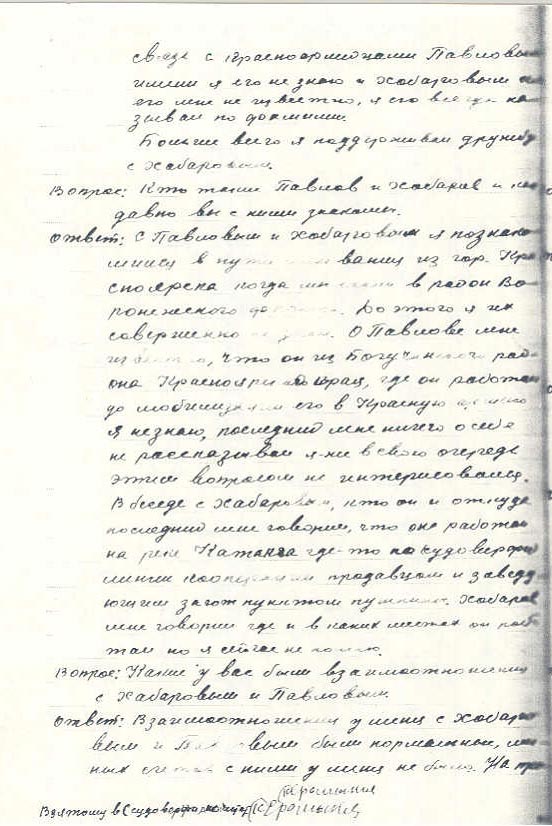 связь с красноармейцами Павловым
имени я его не знаю и Хабаровым
его мне не известно, я его всегда на
зывал по фамилии.
Больше всего я поддерживал дружбу
с Хабаровым.
Вопрос: Кто такие Павлов и Хабаров и
давно вы с ними знакомы.
Ответ: С Павловым и Хабаровым я познако
мился в пути из гор. Кра
сноярска когда мы в район Во
ронежского До этого я их
совершенно не знал. О Павлове мне
известно, что он из Богучанского рай
она Красноярского края, где он работал
до мобилизации его в Красную армию
я не знаю, последний мне ничего о себе
не рассказывал я и в свою очередь
этим вопросом не интересовался.
В беседе с Хабаровым, кто он и откуда
последний мне говорил, что он работал
на реке Катанга где-то по
продавцом и заведу
ющим загот пунктом пушнины. Хабаров
мне говорил где и в каких местах он рабо
тал но я сейчас не помню.
Вопрос: Какие у вас были взаимоотношения
с Хабаровым и Павловым.
Ответ: Взаимоотношения у меня с Хабаро
вым и Павловым были нормальные,
ных счетов с ними у меня не было. На